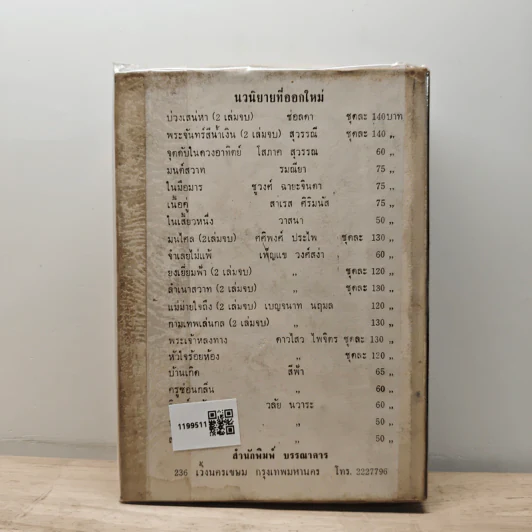 นวนิยายที่ออกใหม่
บ่วงเสน่หา (2 เล่มจบ) ช่อลดา ชุดละ 140 บาท
พระจันทร์สีน้ำเงิน (2 เล่มจบ) สุวรรณี ชุดละ 140 ,,
จุดดับในดวงอาทิตย์ โสภาค สุวรรณ 60 ,,
มนต์สวาท รมณียา 75 ,,
ในมือมาร ชูวงศ์ ฉายะจินดา 75 ,,
เนื้อคู่ สาเรส ศิริมนัส 75 ,,
ในเสี้ยวหนึ่ง วาสนา 50 ,,
มนไดล (2 เล่มจบ) ศศิพงศ์ ประไพ ชุดละ 130 ,,
จำเลยไม่แพ้ เพ็ญแข วงศ์สง่า 60 ,,
ยงเยี่ยมฟ้า (2 เล่มจบ) ,, ชุดละ 120 ,,
ลำเนาสวาท (2 เล่มจบ) ,, ชุดละ 130 ,,
แม่ม่ายใจถึง (2 เล่มจบ) เบญจนาท นฤมล 120 ,,
กามเทพเล่นกล (2 เล่มจบ) ,, 130 ,,
พระเจ้าหลงทาง ดาวไสว ไพจิตร ชุดละ 130 ,,
หัวใจร้อยห้อง ,, ชุดละ 120 ,,
บ้านเกิด สีฟ้า 65 ,,
ครูซ่อนกลิ่น ,, 60 ,,
วลัย นวาระ 60 ,,
,, 50 ,,
,, 50 ,,
1199511
สำนักพิมพ์ บรรณาคาร
236 เวิ้งนครเขษม กรุงเทพมหานคร โทร. 2227796